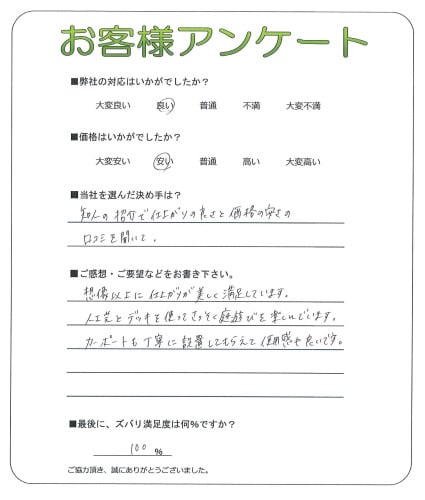 お客様アンケート
■弊社の対応はいかがでしたか？
大変良い 良い 普通 不満 大変不満
■価格はいかがでしたか？
大変安い 安い 普通 高い 大変高い
■当社を選んだ決め手は？
知人の紹介で仕上がりの良さと価格の安さの
口コミを聞いて。
■ご感想・ご要望などをお書き下さい。
想像以上に仕上がりが美しく満足しています。
人工芝とデッキを使ってさっそく庭遊びを楽しんでいます。
カーポートも丁寧に設置してもらえて使用感も良いです。
■最後に、ズバリ満足度は何%ですか？
100 %
ご協力頂き、誠にありがとうございました。